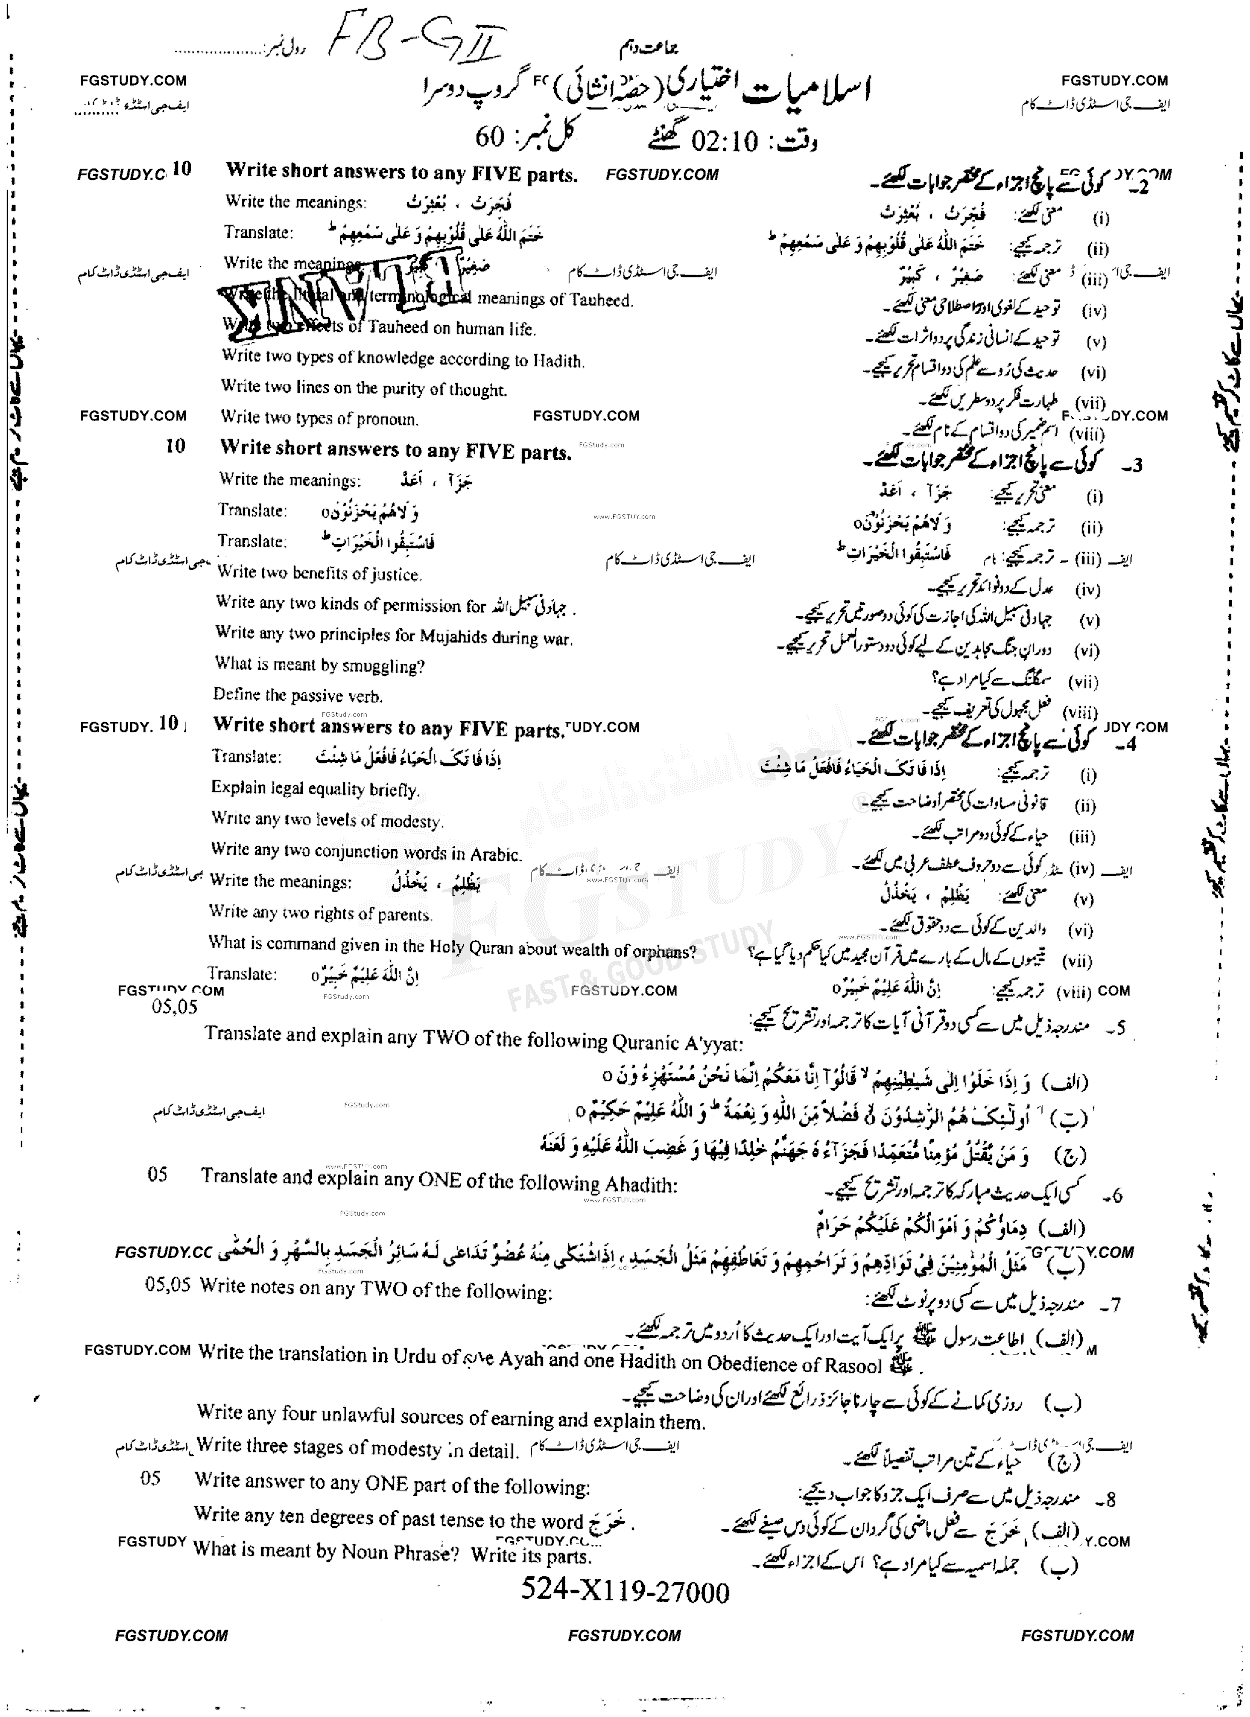 FB-GII
رول نمبر:....................
جماعت دہم
FGSTUDY.COM
اسلامیات اختیاری (حصہ انشائی) گروپ دوسرا
FGSTUDY.COM
ایف جی اسٹڈی ڈاٹ کام
وقت: 02:10 گھنٹے کل نمبر: 60
2- کوئی سے پانچ اجزاء کے مختصر جوابات لکھئے۔
FGSTUDY.COM Write short answers to any FIVE parts. FGSTUDY.C 10
(i) معنی لکھئے: فُجِّرَتْ ، بُعْثِرَتْ
Write the meanings: فُجِّرَتْ ، بُعْثِرَتْ
(ii) ترجمہ کیجئے: خَتَمَ اللّٰهُ عَلٰى قُلُوْبِهِمْ وَ عَلٰى سَمْعِهِمْ ؕ
Translate: خَتَمَ اللّٰهُ عَلٰى قُلُوْبِهِمْ وَ عَلٰى سَمْعِهِمْ ؕ
(iii) معنی لکھئے: صَغِيْرٌ ، كَبِيْرٌ
Write the meanings صَغِيْرٌ
BLANK
(iv) توحید کے لغوی اور اصطلاحی معنی لکھئے۔
Write the literal and terminological meanings of Tauheed.
(v) توحید کے انسانی زندگی پر دو اثرات لکھئے۔
Write two effects of Tauheed on human life.
(vi) حدیث کی رُو سے علم کی دو اقسام تحریر کیجئے۔
Write two types of knowledge according to Hadith.
(vii) طہارت فکر پر دو سطریں لکھئے۔
Write two lines on the purity of thought.
(viii) اسم ضمیر کی دو اقسام کے نام لکھئے۔
FGSTUDY.COM Write two types of pronoun. FGSTUDY.COM
3- کوئی سے پانچ اجزاء کے مختصر جوابات لکھئے۔
10 Write short answers to any FIVE parts.
(i) معنی تحریر کیجئے: جَزَآ ، اَعَدَّ
Write the meanings: جَزَآ ، اَعَدَّ
(ii) ترجمہ کیجئے: وَ لَاهُمْ يَحْزَنُوْنَo
Translate: وَ لَاهُمْ يَحْزَنُوْنَo
(iii) ترجمہ کیجئے: فَاسْتَبِقُوا الْخَيْرَاتِ ؕ
Translate: فَاسْتَبِقُوا الْخَيْرَاتِ ؕ
(iv) عدل کے دو فوائد تحریر کیجئے۔
Write two benefits of justice.
(v) جہاد فی سبیل اللہ کی اجازت کی کوئی دو صورتیں تحریر کیجئے۔
Write any two kinds of permission for جہاد فی سبیل اللہ .
(vi) دوران جنگ مجاہدین کے لیے کوئی دو دستور العمل تحریر کیجئے۔
Write any two principles for Mujahids during war.
(vii) سمگلنگ سے کیا مراد ہے؟
What is meant by smuggling?
(viii) فعل مجہول کی تعریف کیجئے۔
Define the passive verb.
4- کوئی سے پانچ اجزاء کے مختصر جوابات لکھئے۔
FGSTUDY. 10 Write short answers to any FIVE parts.
(i) ترجمہ کیجئے: اِذَا فَا تَکَ الْحَیَاءُ فَافْعَلْ مَا شِئْتَ
Translate: اِذَا فَا تَکَ الْحَیَاءُ فَافْعَلْ مَا شِئْتَ
(ii) قانونی مساوات کی مختصراً وضاحت کیجئے۔
Explain legal equality briefly.
(iii) حیاء کے کوئی دو مراتب لکھئے۔
Write any two levels of modesty.
(iv) کوئی سے دو حروف عطف عربی میں لکھئے۔
Write any two conjunction words in Arabic.
(v) معنی لکھئے: يَظْلِمُ ، يَخْذُلُ
Write the meanings: يَظْلِمُ ، يَخْذُلُ
(vi) والدین کے کوئی سے دو حقوق لکھئے۔
Write any two rights of parents.
(vii) یتیموں کے مال کے بارے میں قرآن مجید میں کیا حکم دیا گیا ہے؟
What is command given in the Holy Quran about wealth of orphans?
(viii) ترجمہ کیجئے: اِنَّ اللّٰهَ عَلِيْمٌ خَبِيْرٌo
Translate: اِنَّ اللّٰهَ عَلِيْمٌ خَبِيْرٌo
FGSTUDY
FAST & GOOD STUDY
5- مندرجہ ذیل میں سے کسی دو قرآنی آیات کا ترجمہ اور تشریح کیجئے:
05,05
Translate and explain any TWO of the following Quranic A'yyat:
(الف) وَ اِذَا خَلَوْا اِلٰى شَيٰطِيْنِهِمْ ۙ قَالُوْآ اِنَّا مَعَكُمْ اِنَّمَا نَحْنُ مُسْتَهْزِءُوْنَo
(ب) اُولٰٓئِكَ هُمُ الرّٰشِدُوْنَ فَضْلًا مِّنَ اللّٰهِ وَ نِعْمَةً ؕ وَ اللّٰهُ عَلِيْمٌ حَكِيْمٌo
(ج) وَ مَنْ يَّقْتُلْ مُؤْمِنًا مُّتَعَمِّدًا فَجَزَآءُهٗ جَهَنَّمُ خٰلِدًا فِيْهَا وَ غَضِبَ اللّٰهُ عَلَيْهِ وَ لَعَنَهٗ
6- کسی ایک حدیث مبارکہ کا ترجمہ اور تشریح کیجئے۔
05 Translate and explain any ONE of the following Ahadith:
(الف) دِمَاؤُكُمْ وَ اَمْوَالُكُمْ عَلَيْكُمْ حَرَامٌ
(ب) مَثَلُ الْمُؤْمِنِيْنَ فِيْ تَوَادِّهِمْ وَ تَرَاحُمِهِمْ وَ تَعَاطُفِهِمْ مَثَلُ الْجَسَدِ ، اِذَاشْتَكٰى مِنْهُ عُضْوٌ تَدَاعٰى لَهٗ سَائِرُ الْجَسَدِ بِالسَّهْرِ وَ الْحُمّٰى
7- مندرجہ ذیل میں سے کسی دو پر نوٹ لکھئے:
05,05 Write notes on any TWO of the following:
(الف) اطاعت رسول ﷺ پر ایک آیت اور ایک حدیث کا اُردو میں ترجمہ لکھئے۔
FGSTUDY.COM Write the translation in Urdu of one Ayah and one Hadith on Obedience of Rasool ﷺ .
(ب) روزی کمانے کے کوئی سے چار ناجائز ذرائع لکھئے اور ان کی وضاحت کیجئے۔
Write any four unlawful sources of earning and explain them.
(ج) حیاء کے تین مراتب تفصیلاً لکھئے۔
Write three stages of modesty in detail.
8- مندرجہ ذیل میں سے صرف ایک جزو کا جواب دیجئے:
05 Write answer to any ONE part of the following:
(الف) خَرَجَ سے فعل ماضی کی گردان کے کوئی دس صیغے لکھئے۔
Write any ten degrees of past tense to the word خَرَجَ .
(ب) جملہ اسمیہ سے کیا مراد ہے؟ اس کے اجزاء لکھئے۔
FGSTUDY What is meant by Noun Phrase? Write its parts.
524-X119-27000
FGSTUDY.COM FGSTUDY.COM FGSTUDY.COM